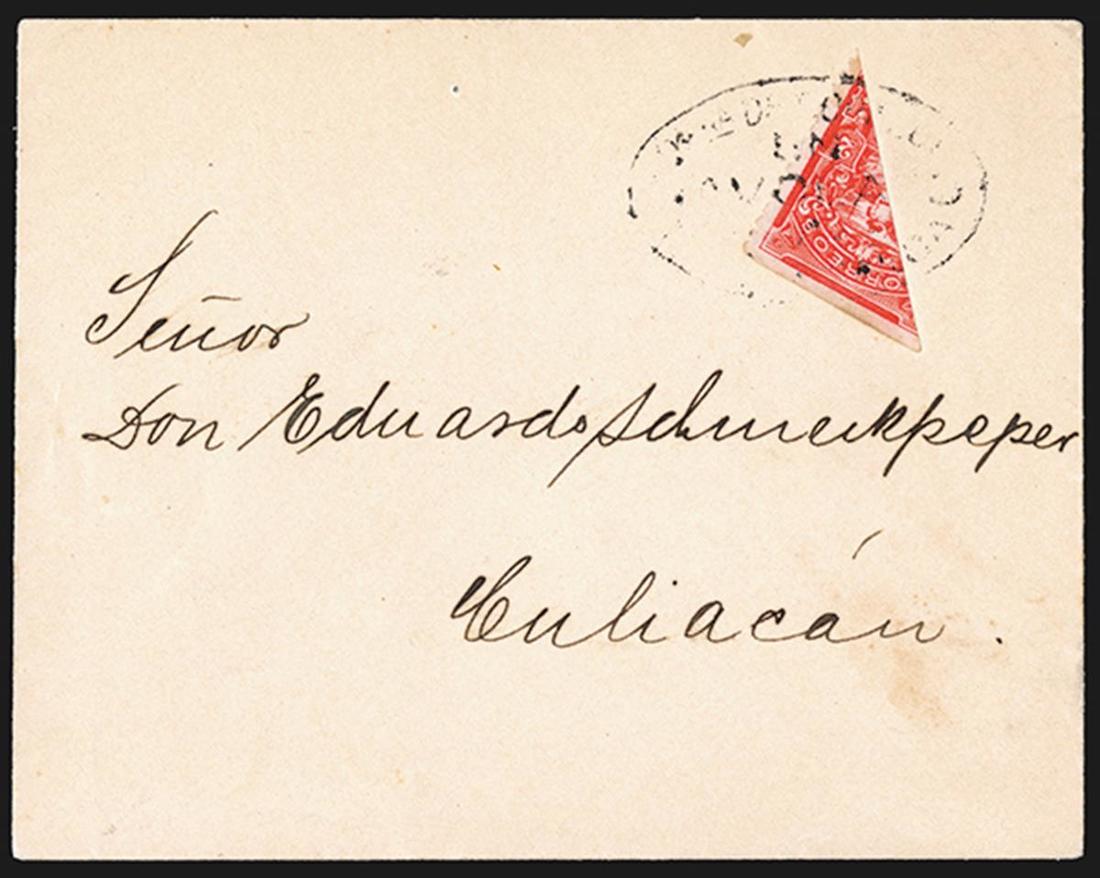 Señor
Don Eduardo Schmeckpeper
Culiacán.
CORREO